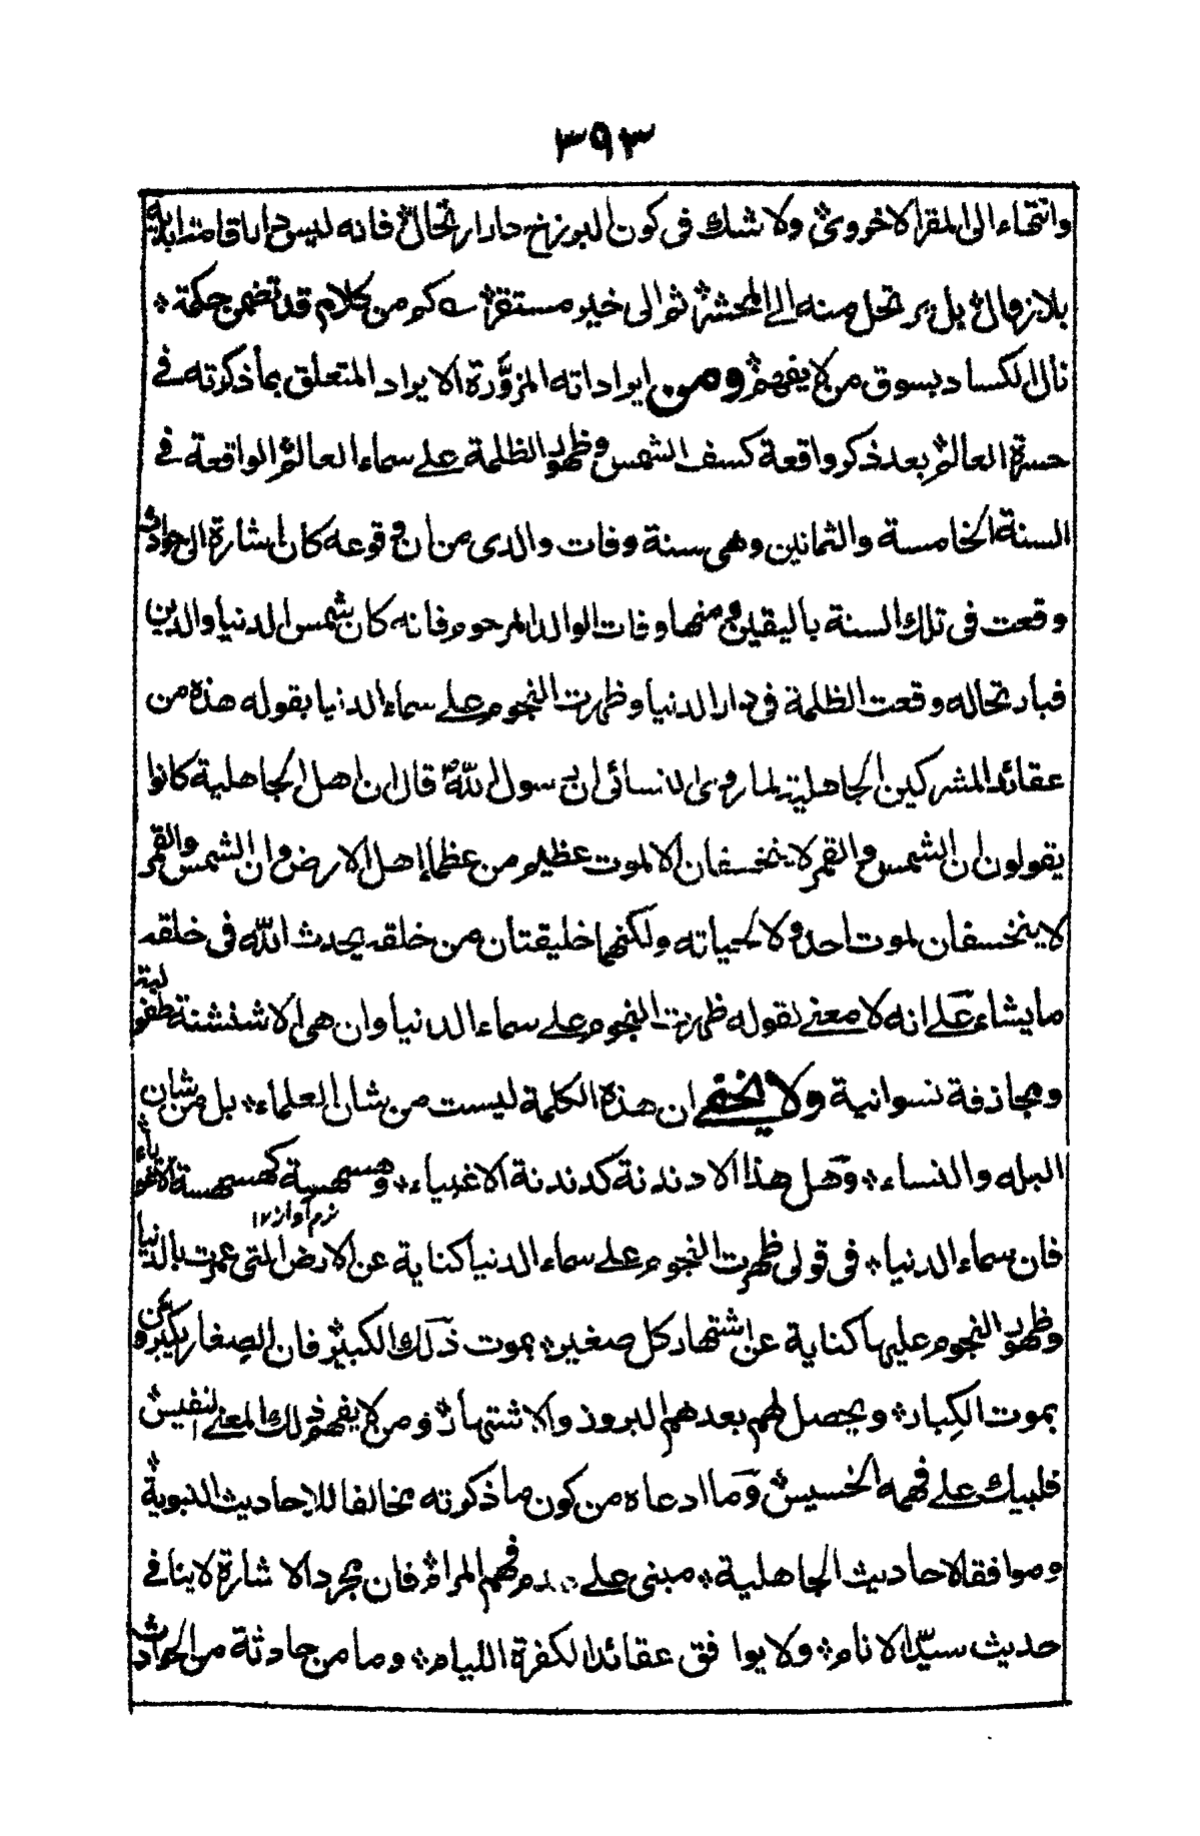 ٣٩٣
وانتهاء الى المقر الاخروي؞ ولا شك فى كون البرزخ دار ارتحال؞ فانه ليس دار اقامة ابدية
بلا زوال؞ بل يرتحل منه الى المحشر؞ ثم الى خير مستقر؞ ے كم من كلام قد تضمن حكمة؞
نال الكساد بسوق من لا يفهم؞ ومن ايراداته المزوَّرة الايراد المتعلق بما ذكرته فے
حسرة العالم؞ بعد ذكر واقعة كسف الشمس وظهور الظلمة علے سماء العالم؞ الواقعة فے
السنة الخامسة والثمانين وهى سنة وفات والدى من ان وقوعه كان اشارة الى حوادث
وقعت فى تلك السنة باليقين ومنها وفات الوالد المرحوم فانه كان شمس الدنيا والدين
فبارتحاله وقعت الظلمة فى دار الدنيا وظهرت النجوم علے سماء الدنيا بقوله هذه من
عقائد المشركين الجاهلية لما روى النسائى ان رسول اللّٰه قال ان اهل الجاهلية كانوا
يقولون ان الشمس والقمر لا ينخسفان الا لموت عظيم من عظماء اهل الارض وان الشمس والقمر
لا ينخسفان لموت احد ولا لحياته ولكنهما خليقتان من خلقه يحدث اللّٰه فى خلقه
ما يشاء علے انه لا معنے لقوله ظهرت النجوم علے سماء الدنيا وان هى الا شنشنة طفولية
ومجازفة نسوانية ولا يخفے ان هذه الكلمة ليست من شان العلماء؞ بل من شان
البله والنساء؞ وهل هذا الا دندنة كدندنة الاغبياء؞ وهسهسة كهسهسة الاغوياء؞
نرم آواز ١٢
فان سماء الدنيا؞ فى قولى ظهرت النجوم علے سماء الدنيا كناية عن الارض التى عمرت بالدنيا
وظهور النجوم عليها كناية عن اشتهار كل صغير؞ بموت ذلك الكبير؞ فان الصغار يكبرون
بموت الكِبار؞ ويحصل لهم بعدهم البروز والاشتهار؞ ومن لا يفهم ذلك المعنے النفيس؞
فليبك علے فهمه الخسيس؞ وما ادعاه من كون ما ذكرته مخالفا للاحاديث النبوية؞
وموافقا لاحاديث الجاهلية؞ مبنى علے عدم فهم المرام؞ فان مجرد الاشارة لا ينافے
حديث سيّد الانام؞ ولا يوافق عقائد الكفرة اللئام؞ وما من حادثة من الحوادث